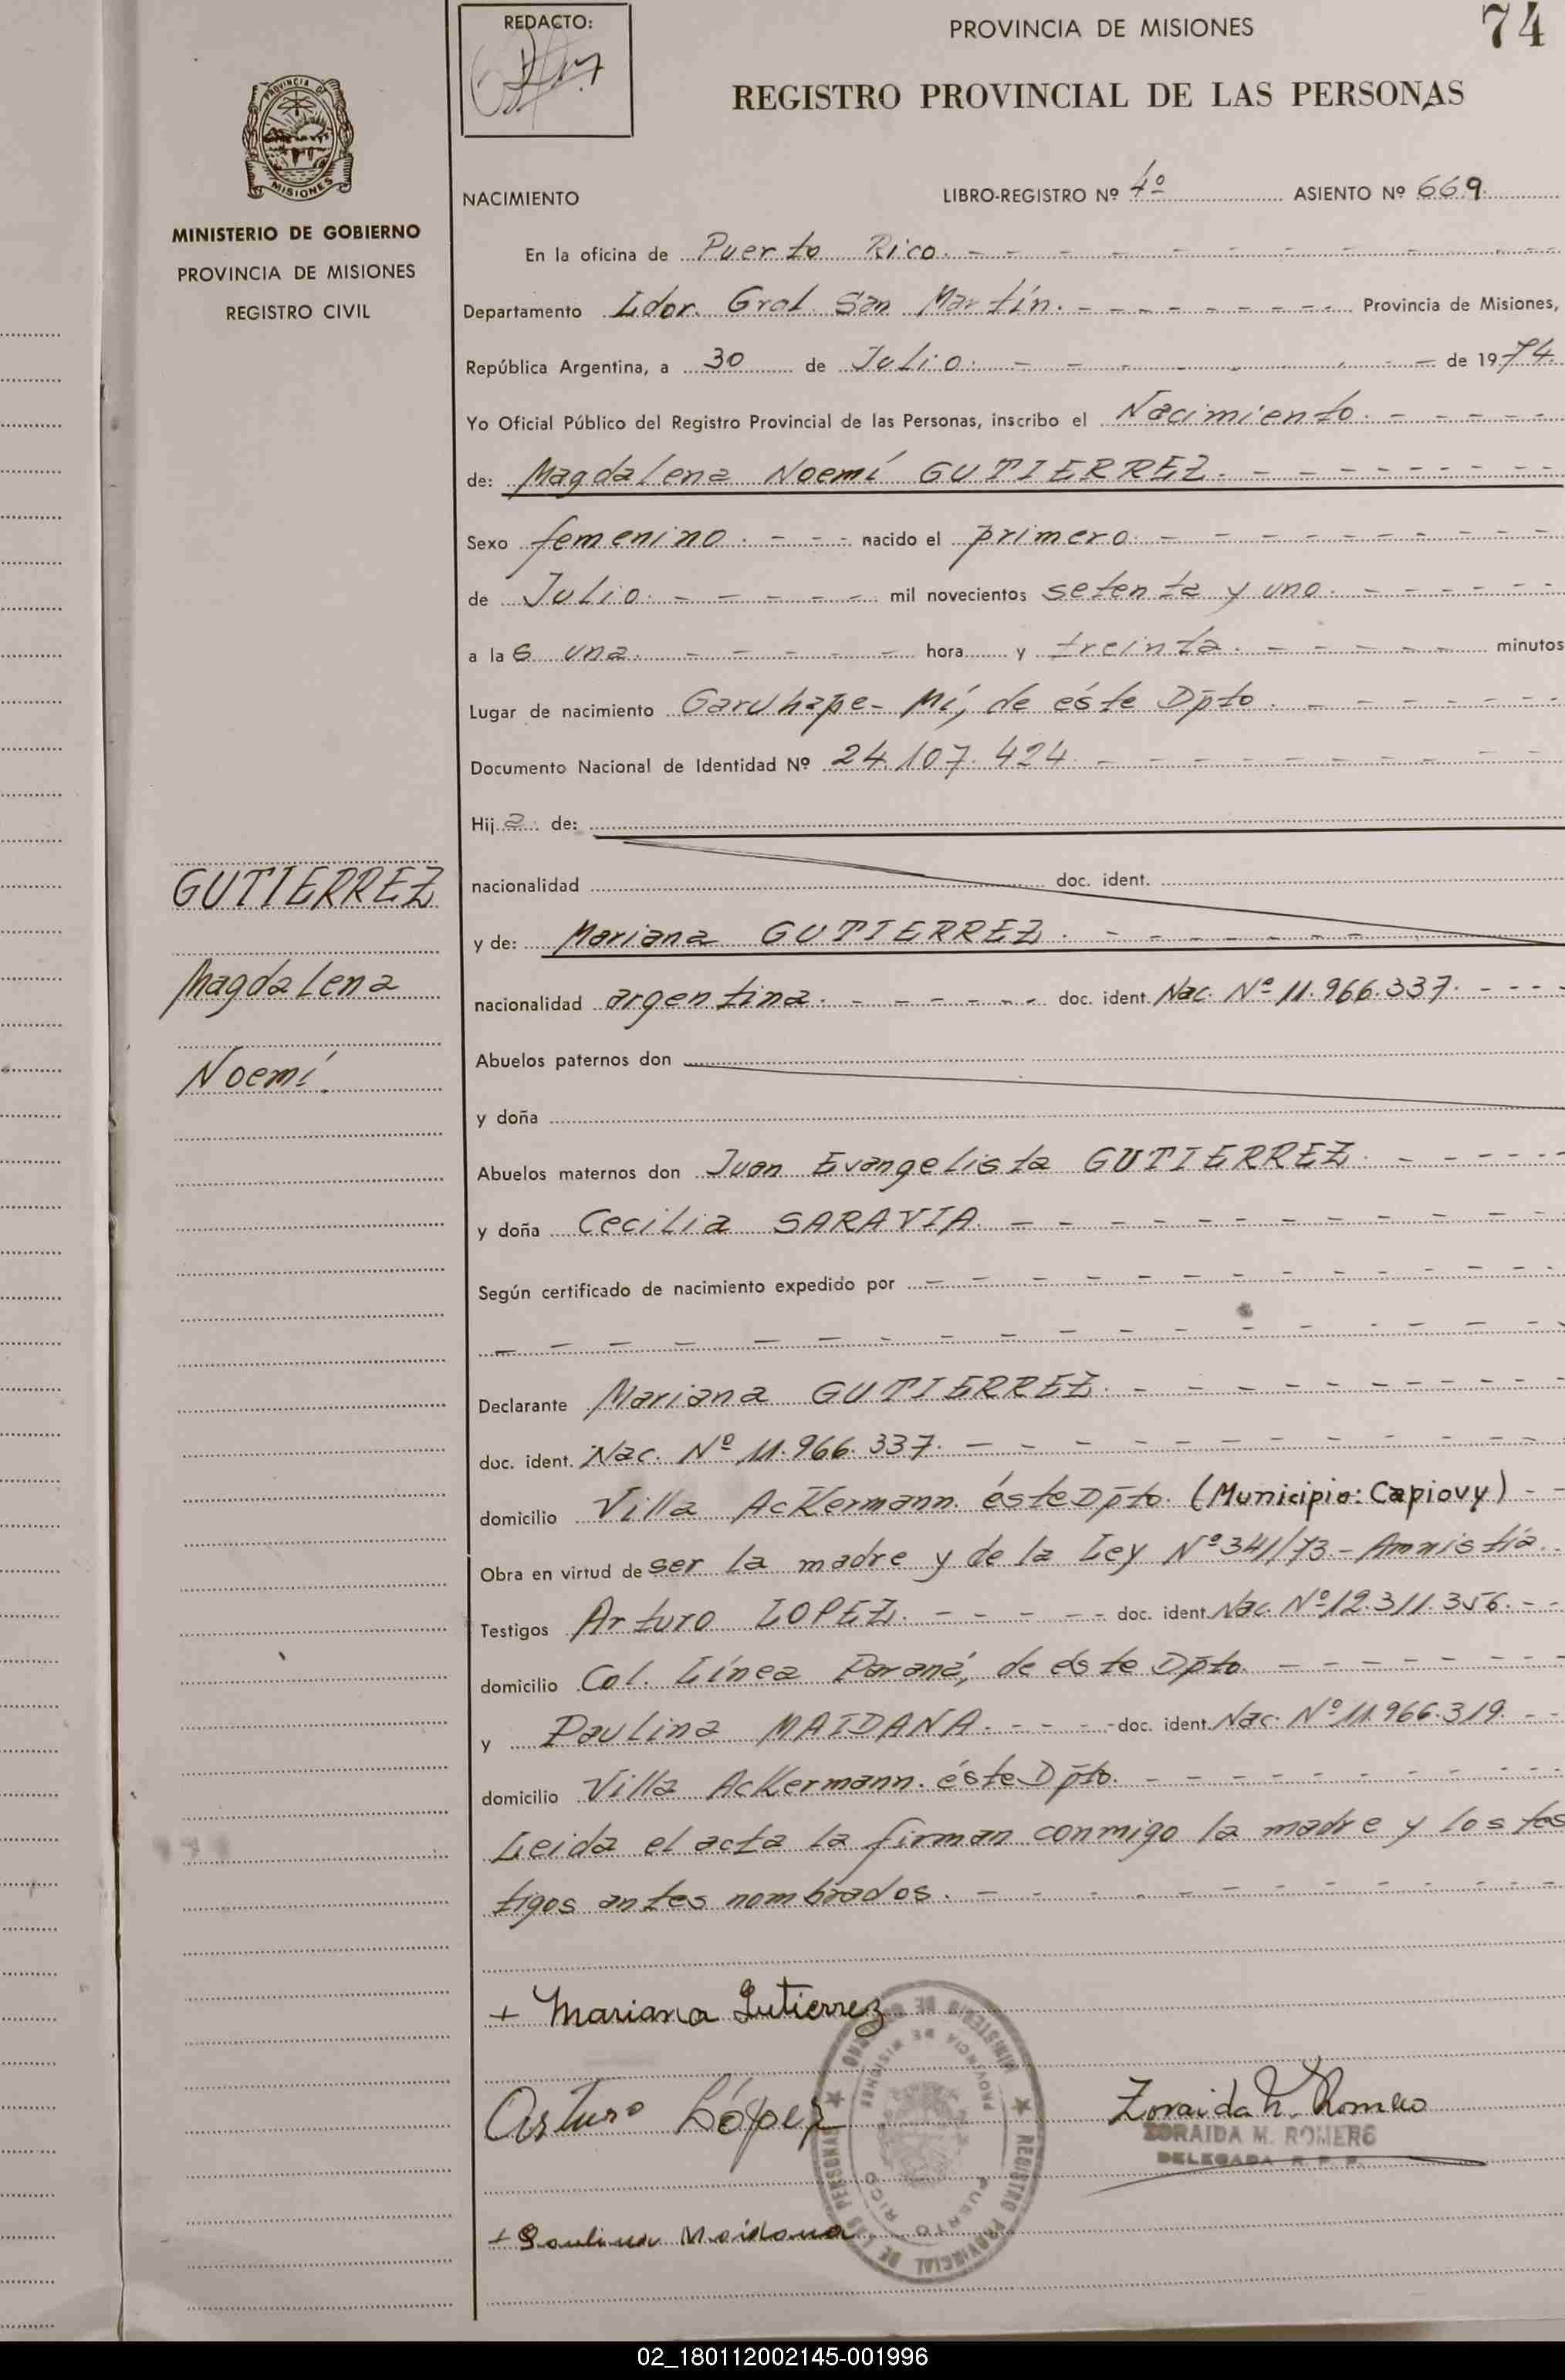 REDACTO:
PROVINCIA DE MISIONES
74
REGISTRO PROVINCIAL DE LAS PERSONAS
PROVINCIA DE
MISIONES
MINISTERIO DE GOBIERNO
PROVINCIA DE MISIONES
REGISTRO CIVIL
NACIMIENTO LIBRO-REGISTRO Nº 4º ASIENTO Nº 669.
En la oficina de Puerto Rico.
Departamento Ldor. Gral. San Martín. Provincia de Misiones,
República Argentina, a 30 de Julio. de 1974.
Yo Oficial Público del Registro Provincial de las Personas, inscribo el Nacimiento.
de: Magdalena Noemí GUTIERREZ.
Sexo femenino. nacido el primero.
de Julio. mil novecientos setenta y uno.
a las una. hora y treinta. minutos
Lugar de nacimiento Garuhape-Mí, de éste Dpto.
Documento Nacional de Identidad Nº 24.107.424
Hija de:
nacionalidad doc. ident.
GUTIERREZ
y de: Mariana GUTIERREZ.
Magdalena
nacionalidad argentina. doc. ident. Nac. Nº 11.966.337.
Noemí.
Abuelos paternos don
y doña
Abuelos maternos don Juan Evangelista GUTIERREZ.
y doña Cecilia SARAVIA.
Según certificado de nacimiento expedido por
Declarante Mariana GUTIERREZ.
doc. ident. Nac. Nº 11.966.337.
domicilio Villa Ackermann. éste Dpto. (Municipio: Capiovy)
Obra en virtud de ser la madre y de la Ley Nº 341/73.- Amnistía.
Testigos Arturo LOPEZ. doc. ident. Nac. Nº 12.311.356.
domicilio Col. Línea Paraná, de éste Dpto.
y Paulina MAIDANA. doc. ident. Nac. Nº 11.966.319.
domicilio Villa Ackermann. éste Dpto.
Leida el acta la firman conmigo la madre y los tes
tigos antes nombrados.
+ Mariana Gutierrez
Arturo López
Zoraida M. Romero
ZORAIDA M. ROMERO
DELEGADA R.P.P.
MINISTERIO DE GOBIERNO ★ REGISTRO PROVINCIAL DE LAS PERSONAS ★
PROVINCIA DE MISIONES
PUERTO RICO
+ Paulina Maidana
02_180112002145-001996